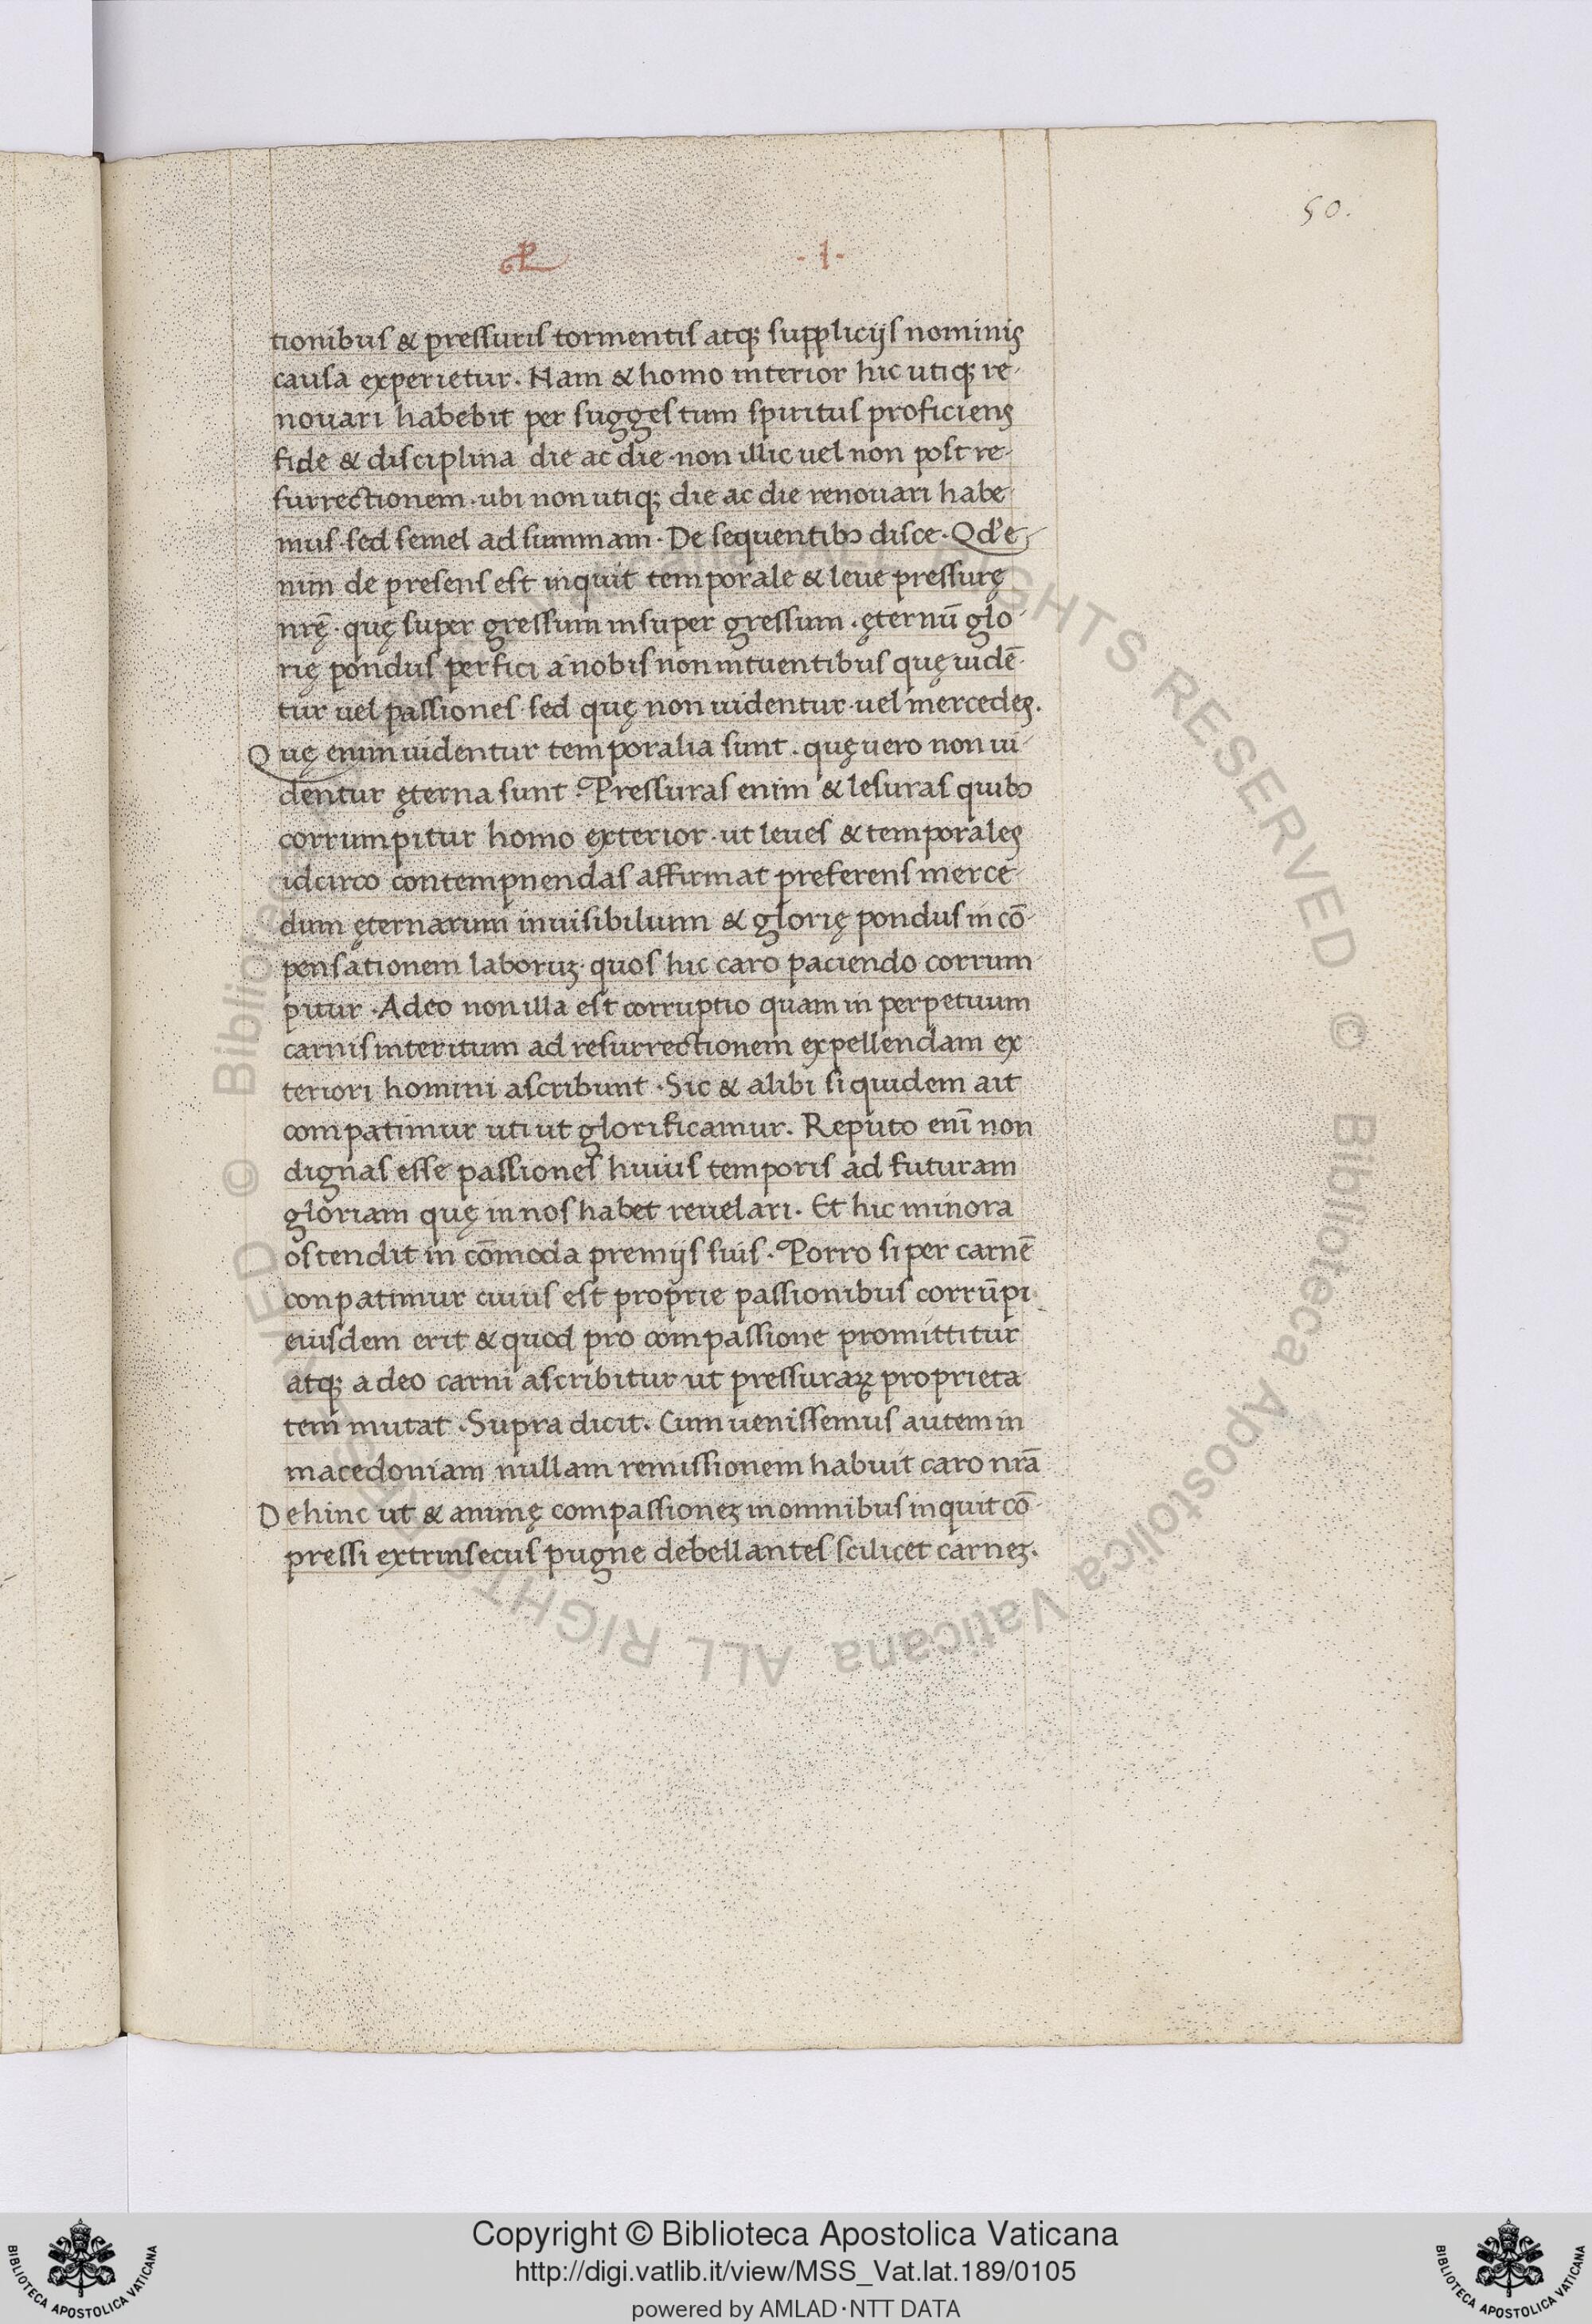 50.
·1·
tionibus & pressuris tormentis atqꝫ suppliciis nominis
causa experietur. Nam & homo interior hic utiqꝫ re-
nouari habebit per suggestum spiritus proficiens
fide & disciplina die ac die · non illic uel non post re-
surrectionem · ubi non utiqꝫ die ac die renouari habe-
mus · sed semel ad summam · De sequentibꝰ disce · Qd' e-
nim de presens est inquit temporale & leue pressurę
nr̄ę · quę super gressum insuper gressum · ęternū glo-
rię pondus perfici a nobis non intuentibus quę uidē-
tur uel passiones · sed quę non uidentur · uel mercedes.
Quę enim uidentur temporalia sunt · quę uero non ui-
dentur ęterna sunt · Pressuras enim & lesuras quibꝰ
corrumpitur homo exterior · ut leues & temporales
idcirco contempnendas affirmat preferens merce-
dum ęternarum inuisibilium & glorię pondus in cō-
pensationem laboruꝫ · quos hic caro paciendo corrum-
pitur · Adeo non illa est corruptio quam in perpetuum
carnis interitum ad resurrectionem expellendam ex-
teriori homini ascribunt · Sic & alibi siquidem ait
compatimur uti ut glorificamur. Reputo enī non
dignas esse passiones huius temporis ad futuram
gloriam quę in nos habet reuelari. Et hic minora
ostendit in cōmoda premijs suis · Porro si per carnē
conpatimur cuius est proprie passionibus corrūpi
eiusdem erit & quod pro compassione promittitur
atqꝫ adeo carni ascribitur ut pressuraꝝ proprieta-
tem mutat · Supra dicit. Cum uenissemus autem in
macedoniam nullam remissionem habuit caro nrā
Dehinc ut & animę compassioneꝫ in omnibus inquit cō-
pressi extrinsecus pugne debellantes scilicet carneꝫ.
© Biblioteca Apostolica Vaticana ALL RIGHTS RESERVED
Copyright © Biblioteca Apostolica Vaticana
http://digi.vatlib.it/view/MSS_Vat.lat.189/0105
powered by AMLAD·NTT DATA
BIBLIOTECA APOSTOLICA VATICANA
BIBLIOTECA APOSTOLICA VATICANA